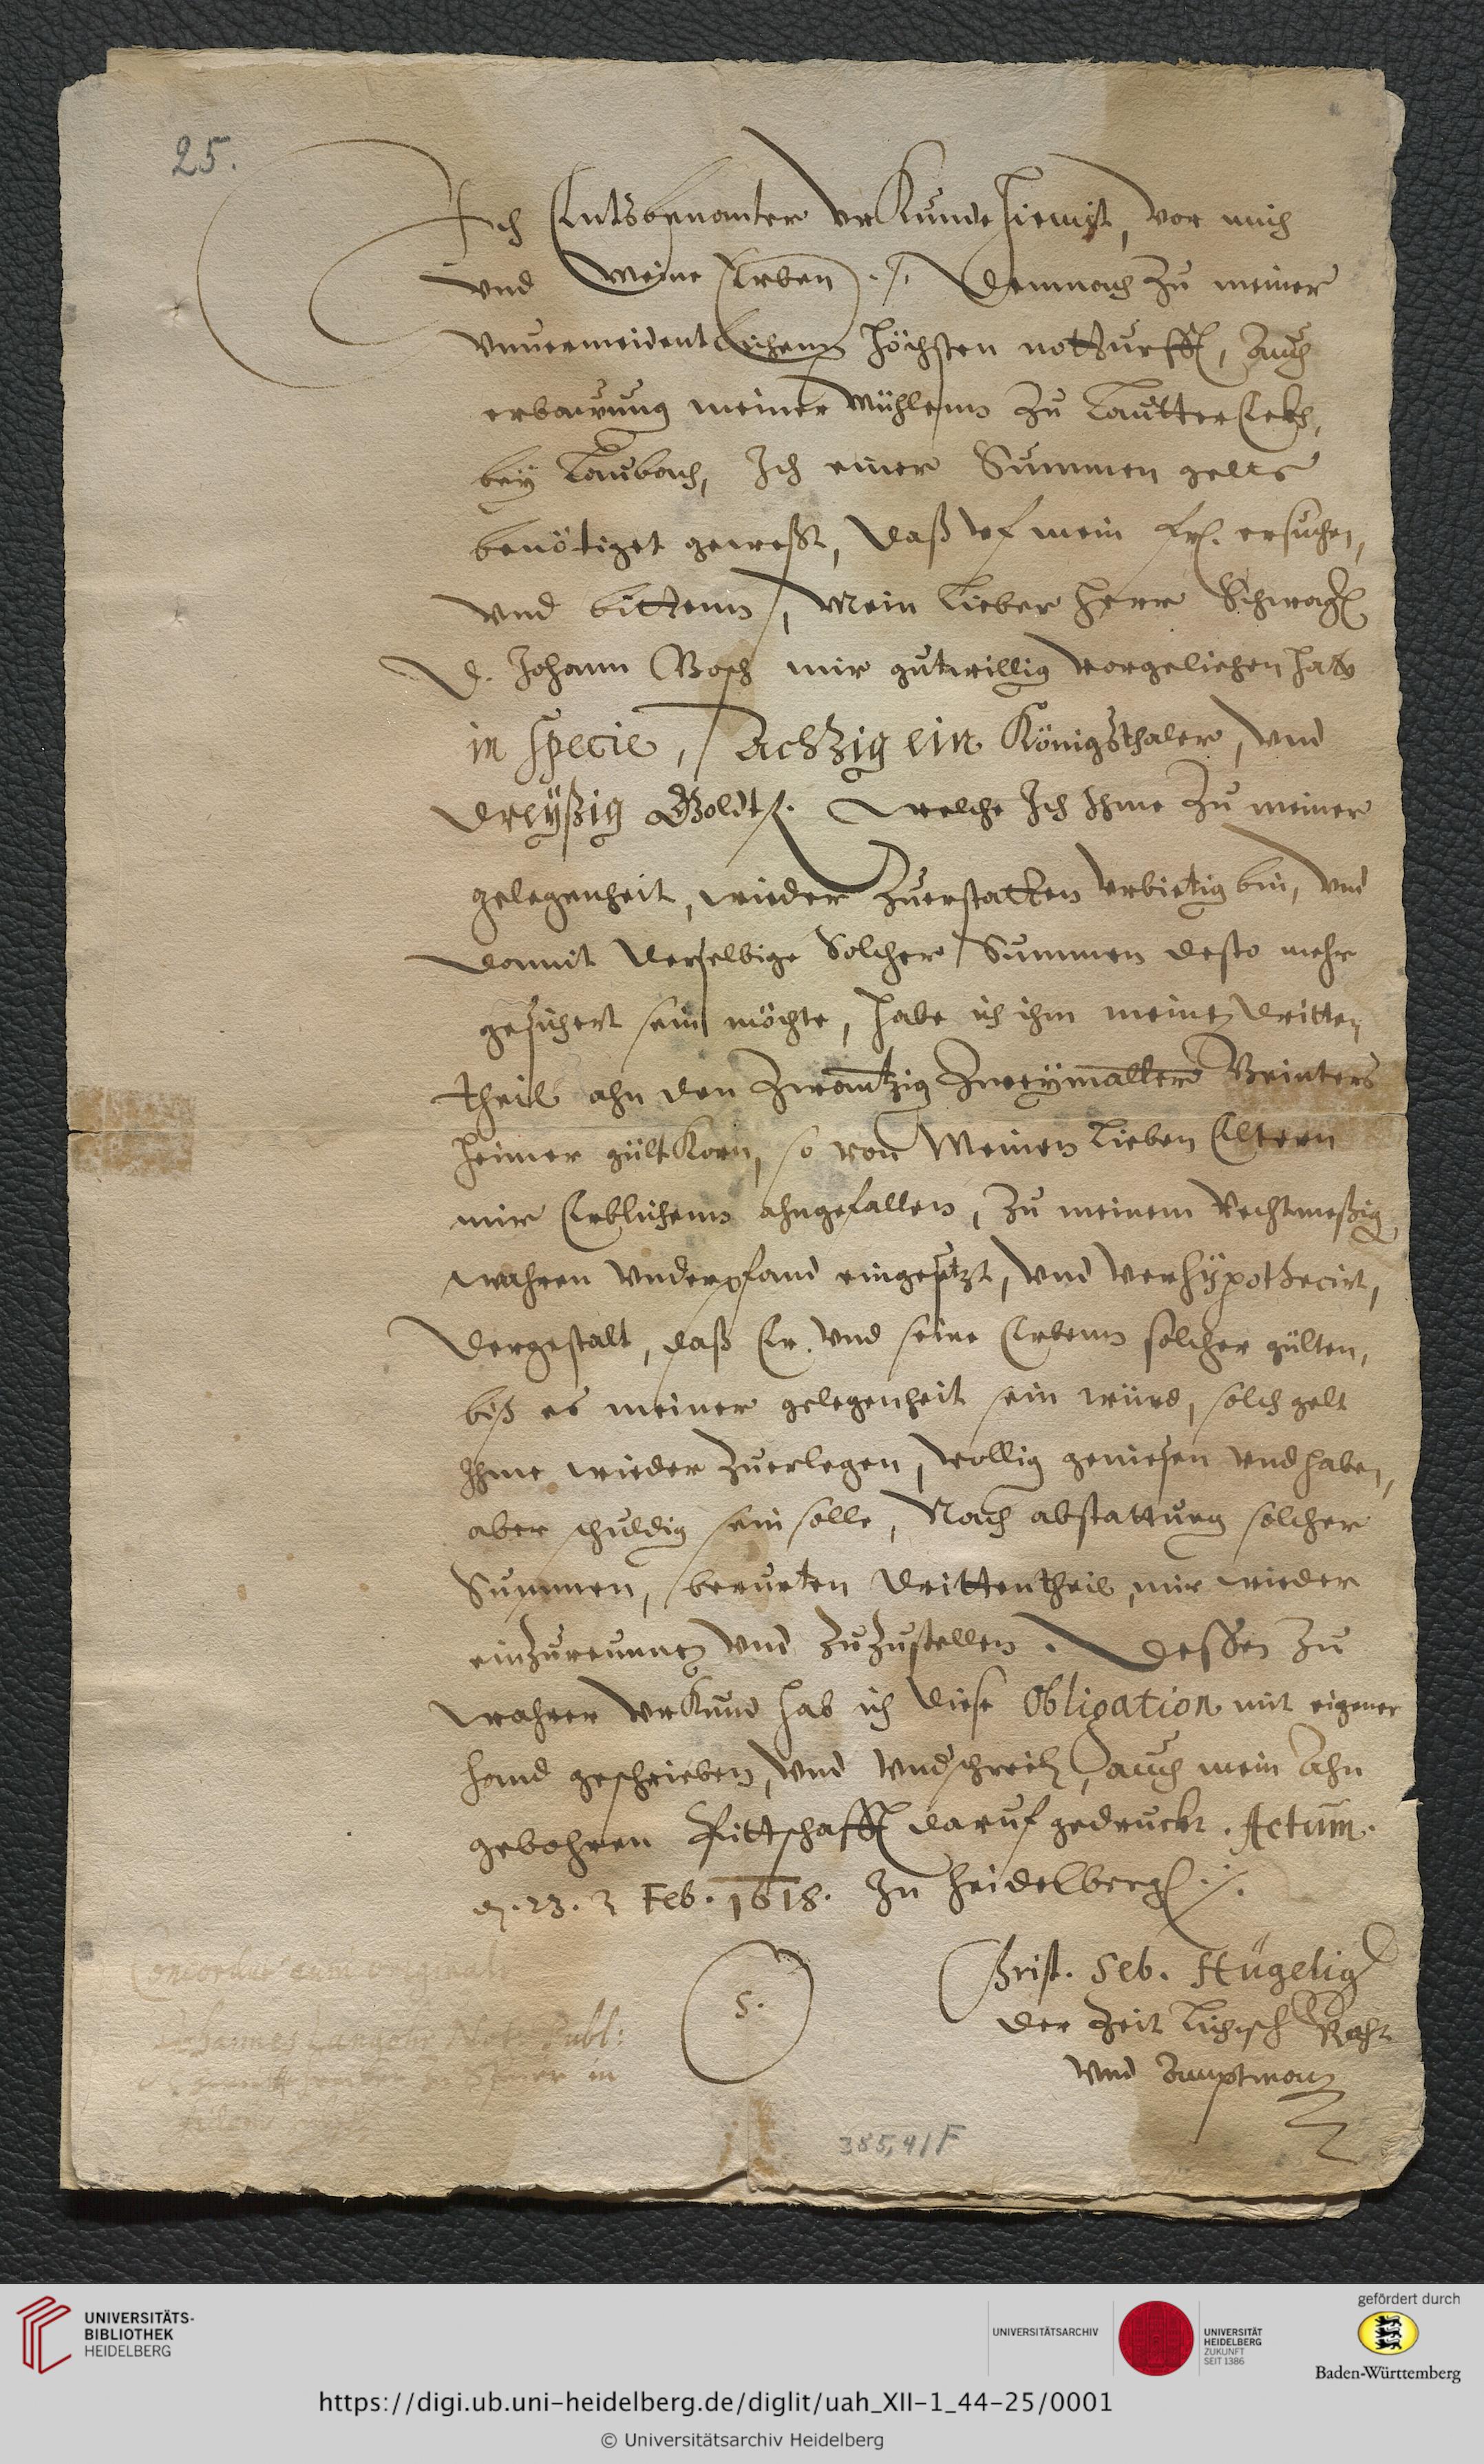 25.
Ich Entsbenanter urKunde hiemit, vor mich
und meine Erben ./. Demnach zu meiner
unuermeidentlichenn höchsten notturfft, auch
erbawung meiner Mühlenn zu Lautter
bey Laubach, Ich einer Summen gelts
benötiget gewest, daß uf mein frl. ersuchen,
und bittenn, Mein lieber Herr Schwag
D. Johann Bosch mir gutwillig vorgeliehen hatt
in specie, Achzig ein Königsthaler, und
dreyßig Goldtfl. welche Ich Ihme zu meiner
gelegenheit, wieder zuerstatten urbietig bin, und
damit derselbige Solcher Summen desto mehr
gesichert sein möchte, habe ich ihm meinen dritten
theil ahn den zwantzig zweymalter
heimer gültKorn, so von Meinen lieben Eltern
mir Erblichenn ahngefallen, zu meinem Rechtmeßig
wahren underpfand eingesetzt, und verhypothecirt,
dergestalt, daß Er und seine Erbenn solcher gülten,
biß es meiner gelegenheit sein würd, solch gelt
Ihme wieder zuerlegen, vollig geniesen und haben,
aber schuldig sein solle, Nach abstattung solcher
Summen, berurten drittentheil mir wieder
einzureumen und zuzustellen. Dessen zu
wahrer urKund hab ich diese Obligation mit eigener
hand geschrieben, und undschrieb, auch mein Ahn
gebohren Pittschafft daruf gedruckt. Actum.
d. 23. Feb. 1618. zu Heidelberg ./.
Christ. Seb. Hügelig
S.
der Zeit Raht
und Amptman
Concordat cum originali
Johannes Not. Publ:
385,41F
UNIVERSITÄTS-
BIBLIOTHEK
HEIDELBERG
UNIVERSITÄTSARCHIV
UNIVERSITÄT
HEIDELBERG
ZUKUNFT
SEIT 1386
gefördert durch
Baden-Württemberg
https://digi.ub.uni-heidelberg.de/diglit/uah_XII-1_44-25/0001
© Universitätsarchiv Heidelberg